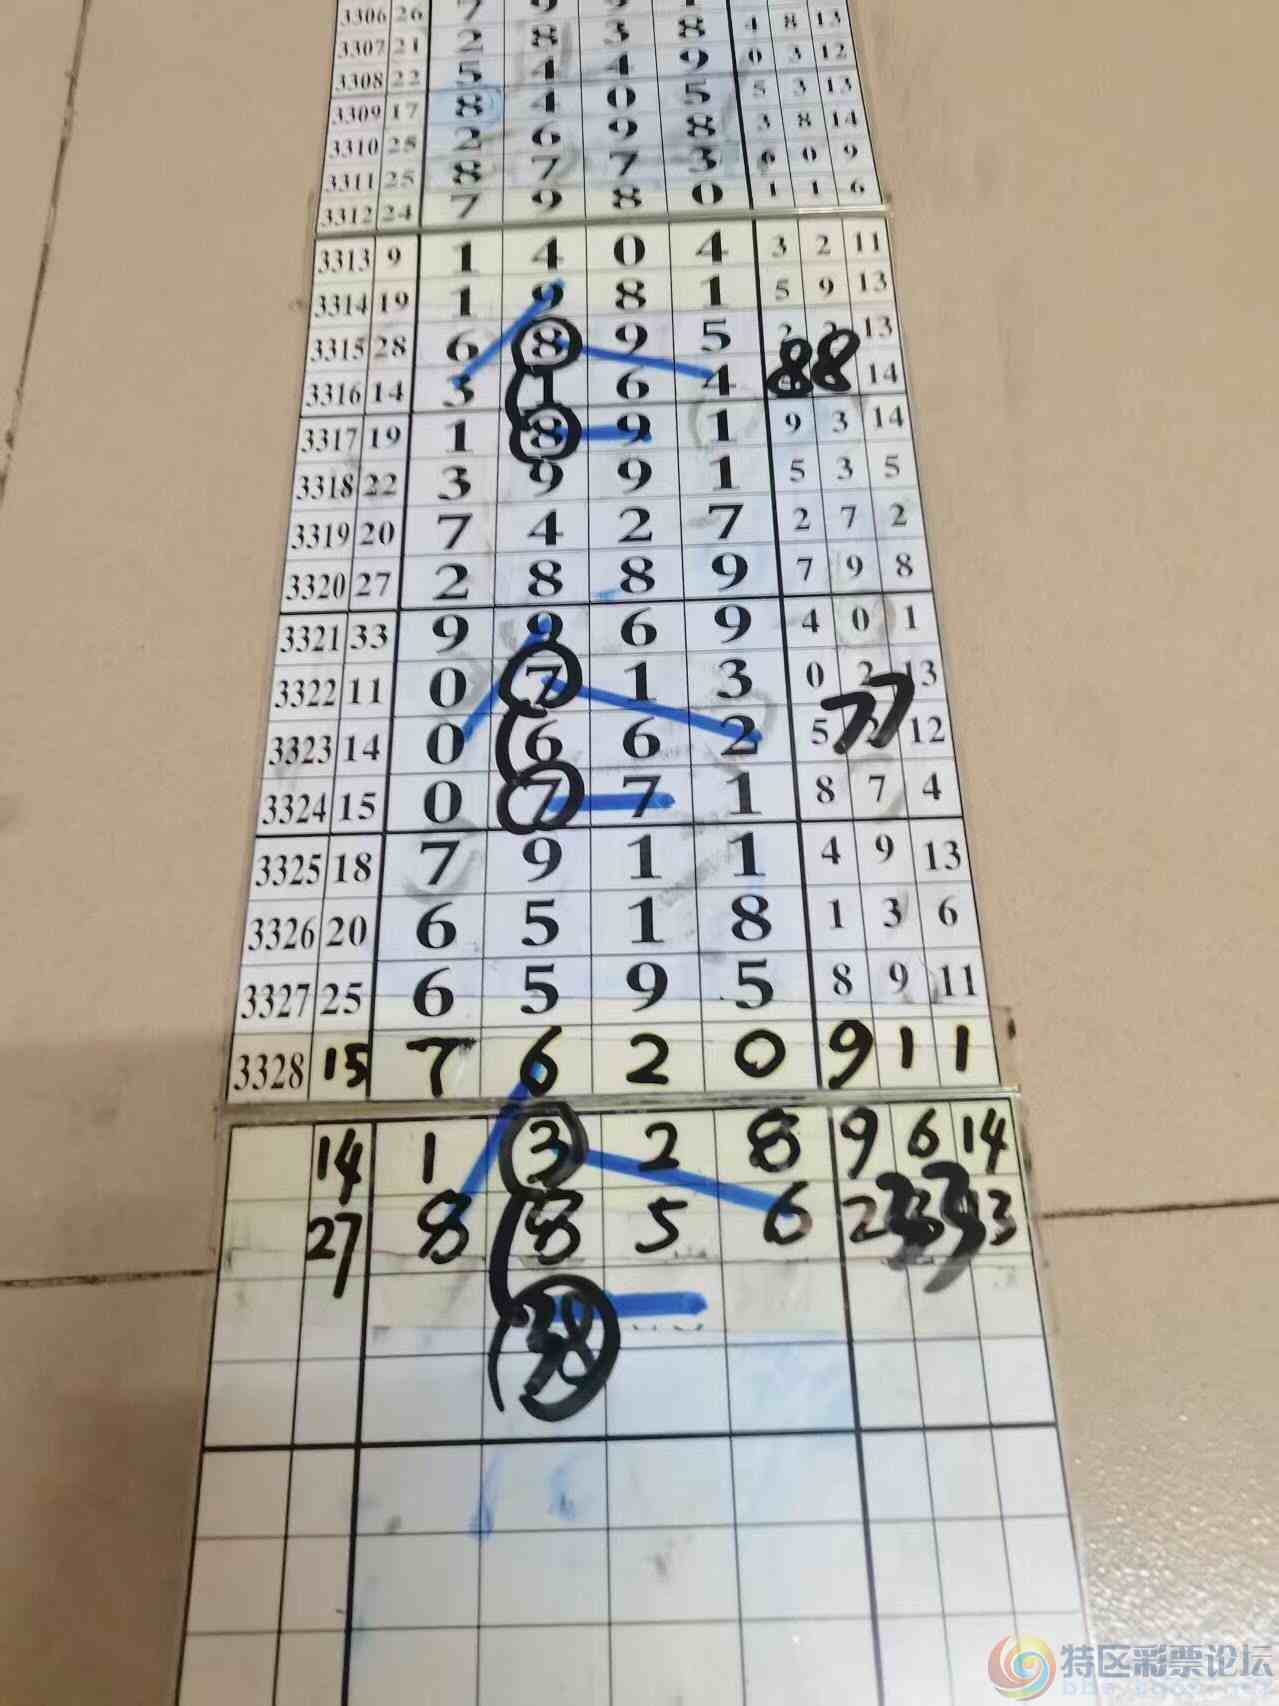 3306 26 7 9 9 1 4 8 13
3307 21 2 8 3 8 0 3 12
3308 22 5 4 4 9 5 3 13
3309 17 8 4 0 5 3 8 14
3310 25 2 6 9 8 6 0 9
3311 25 8 7 7 3 1 1 6
3312 24 7 9 8 0
3313 9 1 4 0 4 3 2 11
3314 19 1 9 8 1 5 9 13
3315 28 6 8 9 5 2 2 13
3316 14 3 1 6 4 88 14
3317 19 1 8 9 1 9 3 14
3318 22 3 9 9 1 5 3 5
3319 20 7 4 2 7 2 7 2
3320 27 2 8 8 9 7 9 8
3321 33 9 9 6 9 4 0 1
3322 11 0 7 1 3 0 2 13
3323 14 0 6 6 2 5 77 12
3324 15 0 7 7 1 8 7 4
3325 18 7 9 1 1 4 9 13
3326 20 6 5 1 8 1 3 6
3327 25 6 5 9 5 8 9 11
3328 15 7 6 2 0 9 1 1
14 1 3 2 8 9 6 14
27 8 8 5 6 2 33 13
38
特区彩票论坛